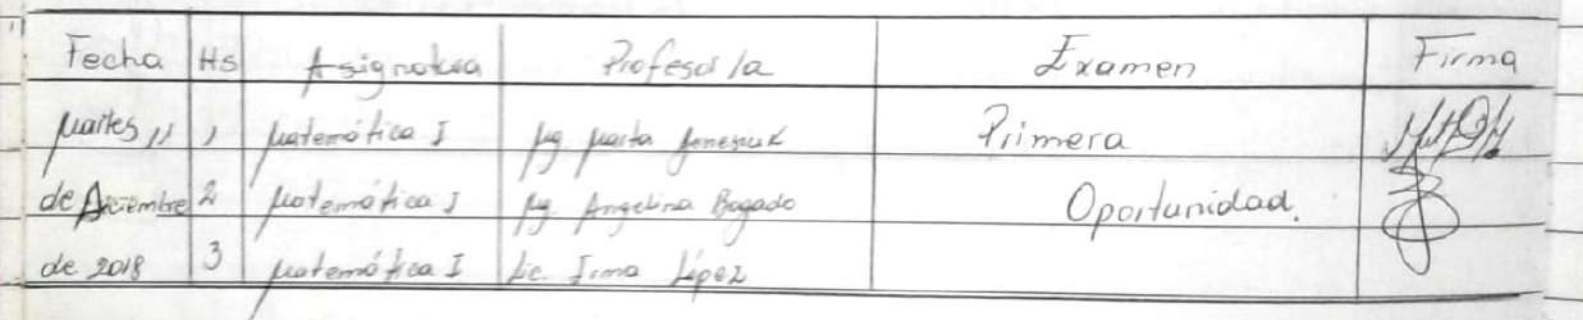 Fecha Hs Asignatura Profesor/a Examen Firma
Martes 11 1 Matemática I Mg. Marta Primera
de Diciembre 2 Matemática I Mg. Angelina Bogado Oportunidad.
de 2018 3 Matemática I Lic. Irma López